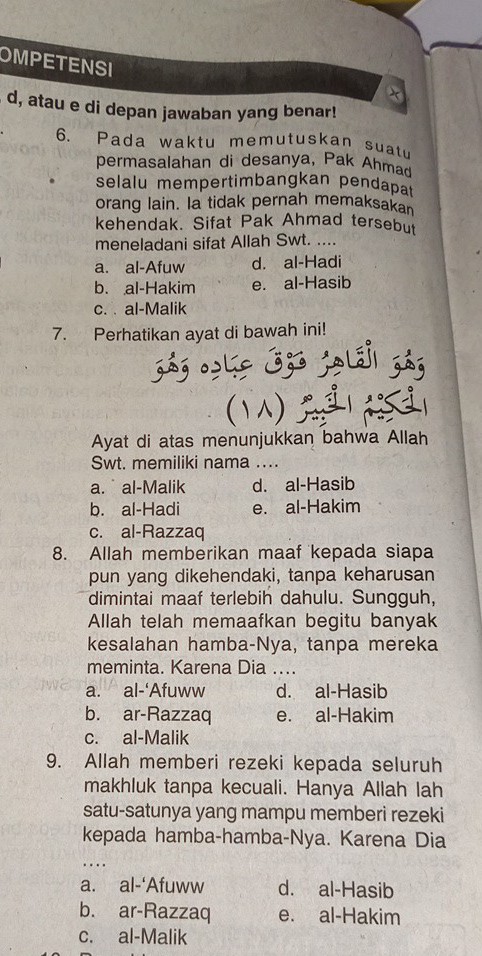 OMPETENSI
d, atau e di depan jawaban yang benar!
6. Pada waktu memutuskan suatu
permasalahan di desanya, Pak Ahmad
selalu mempertimbangkan pendapat
orang lain. Ia tidak pernah memaksakan
kehendak. Sifat Pak Ahmad tersebut
meneladani sifat Allah Swt. ....
a. al-Afuw d. al-Hadi
b. al-Hakim e. al-Hasib
c. al-Malik
7. Perhatikan ayat di bawah ini!
وَهُوَ الْقَاهِرُ فَوْقَ عِبَادِهِ وَهُوَ
الْحَكِيْمُ الْخَبِيْرُ (١٨)
Ayat di atas menunjukkan bahwa Allah
Swt. memiliki nama ....
a. al-Malik d. al-Hasib
b. al-Hadi e. al-Hakim
c. al-Razzaq
8. Allah memberikan maaf kepada siapa
pun yang dikehendaki, tanpa keharusan
dimintai maaf terlebih dahulu. Sungguh,
Allah telah memaafkan begitu banyak
kesalahan hamba-Nya, tanpa mereka
meminta. Karena Dia ....
a. al-‘Afuww d. al-Hasib
b. ar-Razzaq e. al-Hakim
c. al-Malik
9. Allah memberi rezeki kepada seluruh
makhluk tanpa kecuali. Hanya Allah lah
satu-satunya yang mampu memberi rezeki
kepada hamba-hamba-Nya. Karena Dia
....
a. al-‘Afuww d. al-Hasib
b. ar-Razzaq e. al-Hakim
c. al-Malik